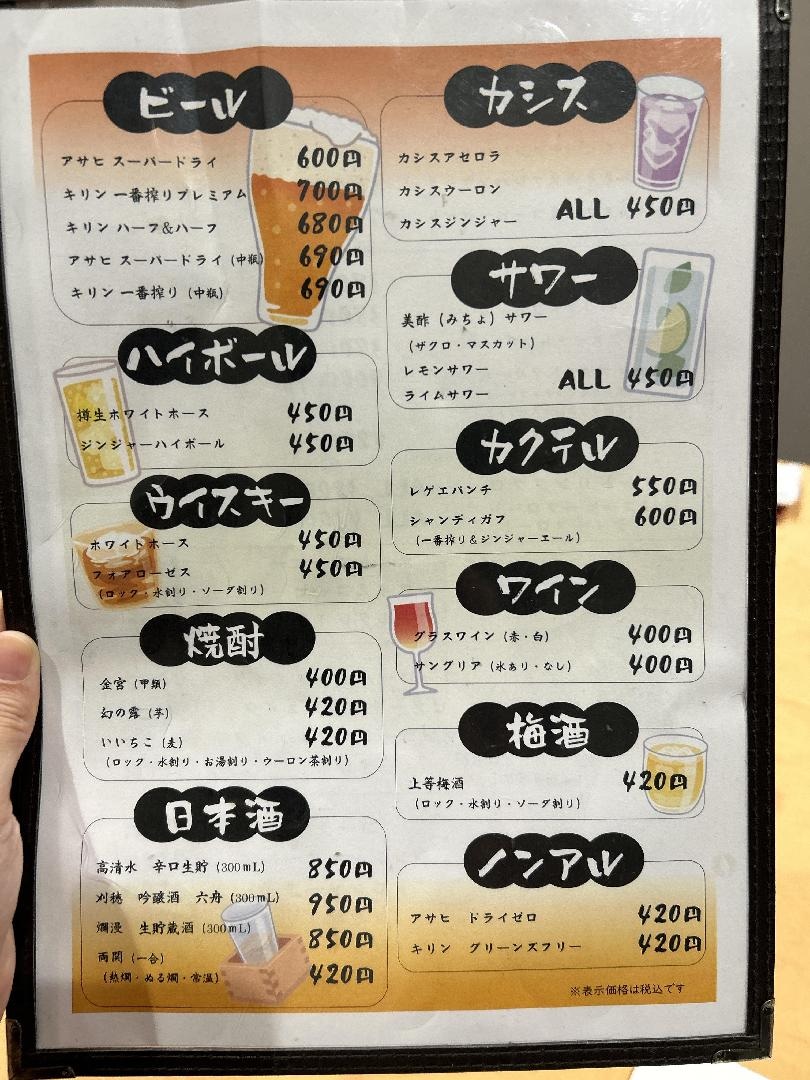 ビール
アサヒ スーパードライ 600円
キリン 一番搾りプレミアム 700円
キリン ハーフ&ハーフ 680円
アサヒ スーパードライ (中瓶) 690円
キリン 一番搾り (中瓶) 690円
ハイボール
樽生ホワイトホース 450円
ジンジャーハイボール 450円
ウイスキー
ホワイトホース 450円
フォアローゼス 450円
(ロック・水割り・ソーダ割り)
焼酎
金宮 (甲類) 400円
幻の露 (芋) 420円
いいちこ (麦) 420円
(ロック・水割り・お湯割り・ウーロン茶割り)
日本酒
高清水 辛口生貯 (300mL) 850円
刈穂 吟醸酒 六舟 (300mL) 950円
爛漫 生貯蔵酒 (300mL) 850円
両関 (一合)
(熱燗・ぬる燗・常温) 420円
カシス
カシスアセロラ
カシスウーロン
カシスジンジャー
ALL 450円
サワー
美酢 (みちょ) サワー
(ザクロ・マスカット)
レモンサワー
ライムサワー
ALL 450円
カクテル
レゲエパンチ 550円
シャンディガフ 600円
(一番搾り&ジンジャーエール)
ワイン
グラスワイン (赤・白) 400円
サングリア (氷あり・なし) 400円
梅酒
上等梅酒 420円
(ロック・水割り・ソーダ割り)
ノンアル
アサヒ ドライゼロ 420円
キリン グリーンズフリー 420円
※表示価格は税込です